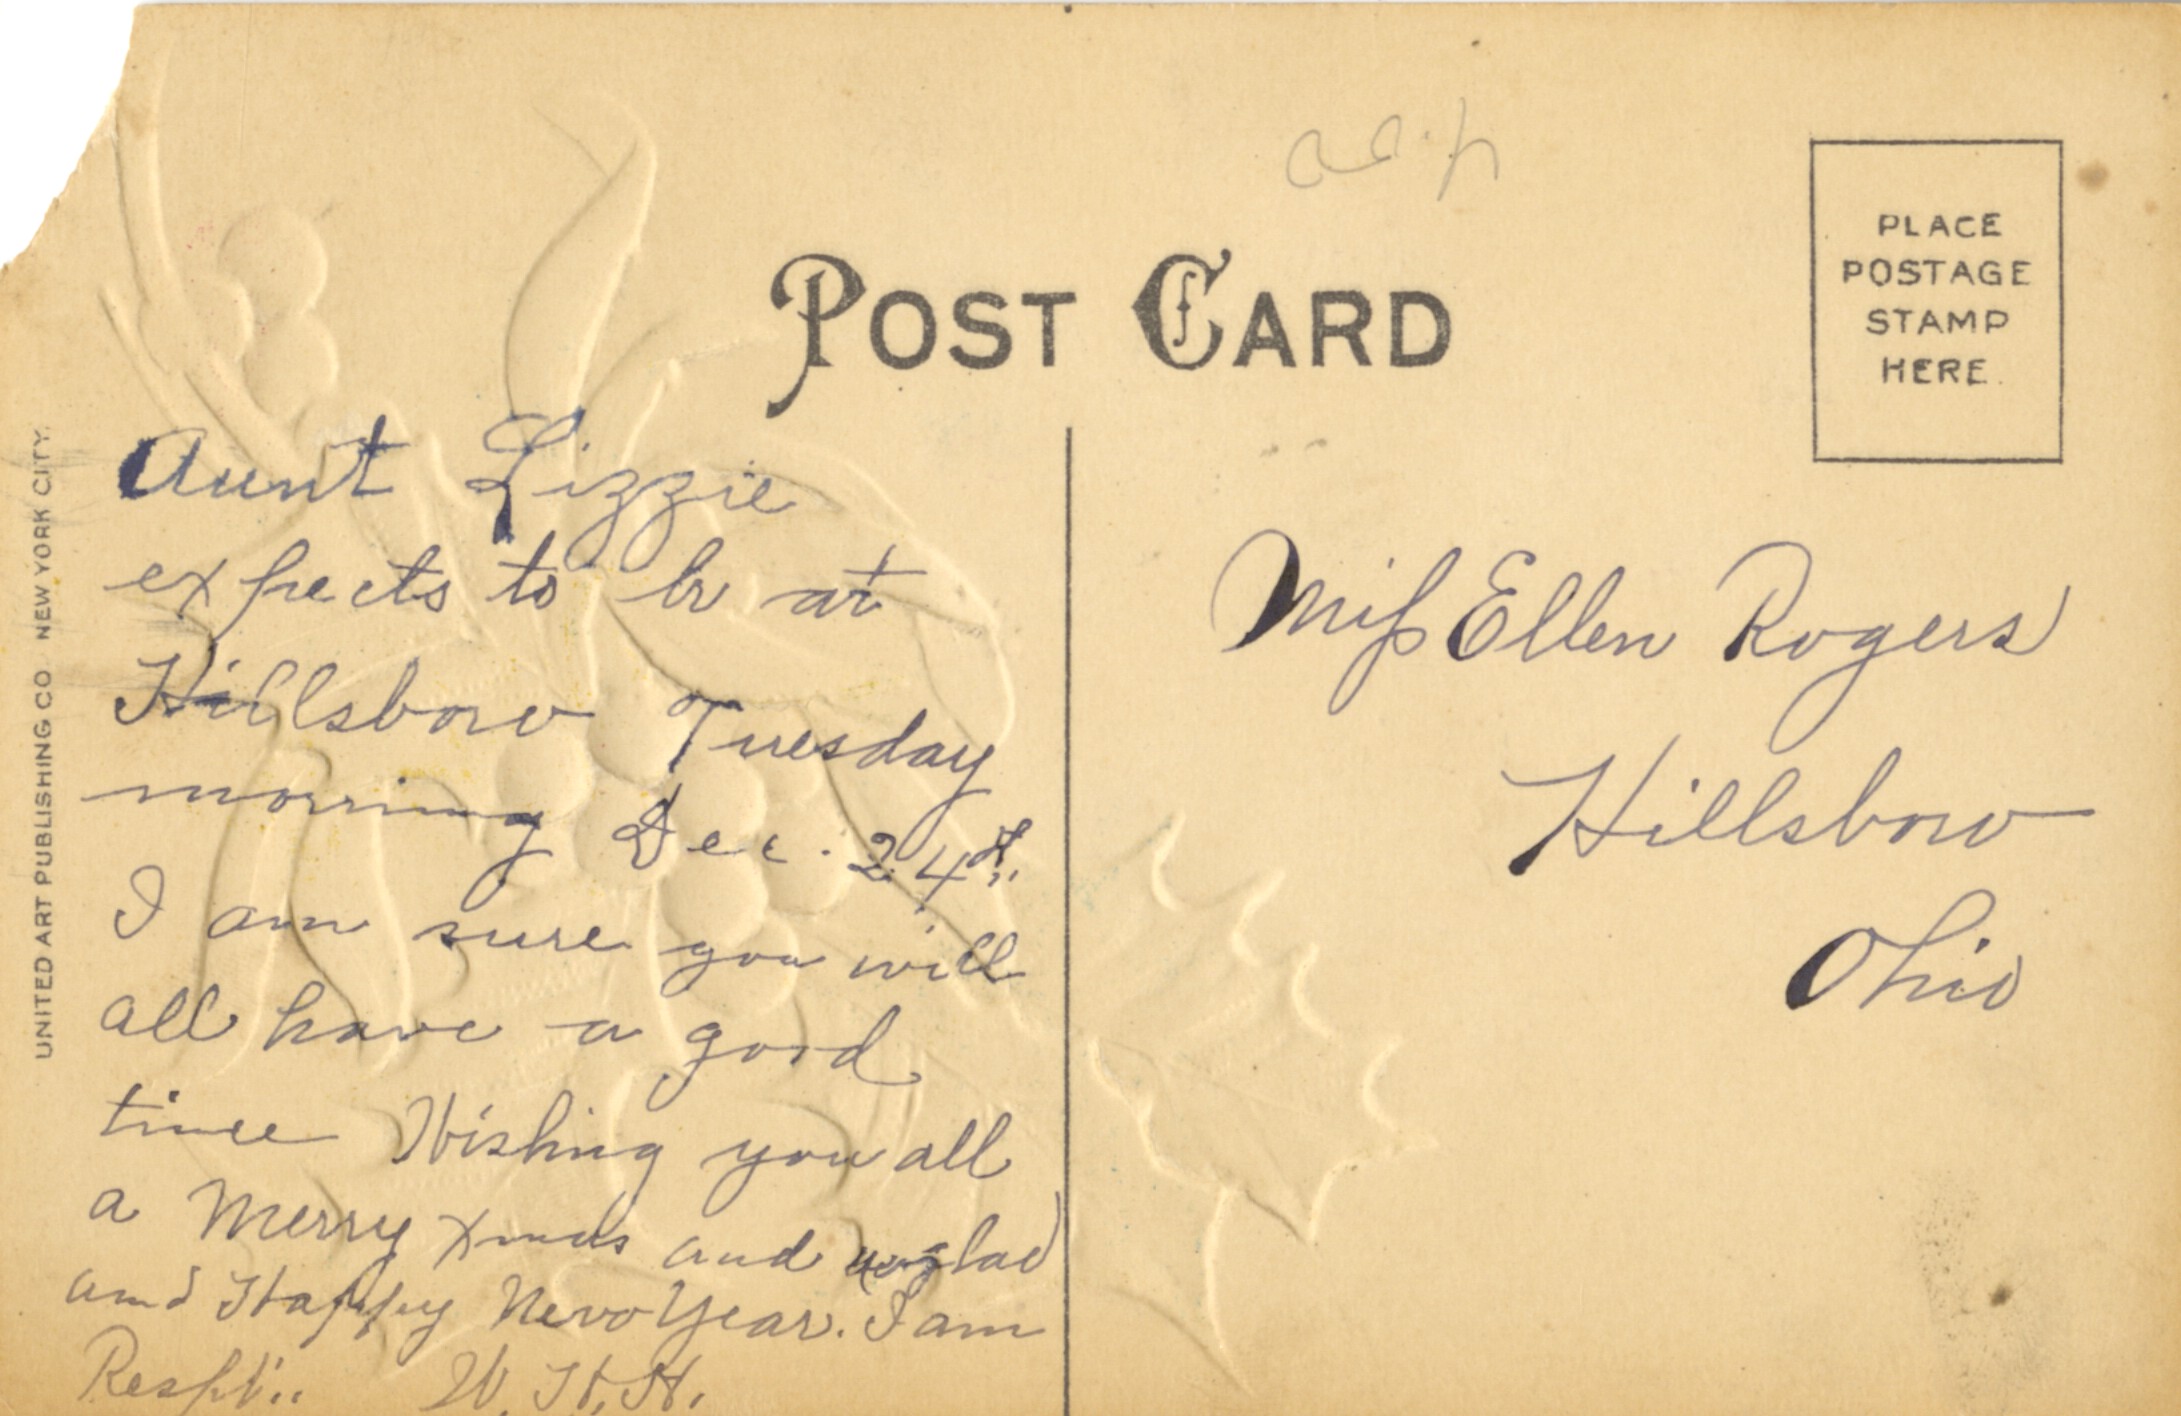 POST CARD
PLACE
POSTAGE
STAMP
HERE
UNITED ART PUBLISHING CO NEW YORK CITY.
Aunt Lizzie
expects to be at
Hillsboro Tuesday
morning Dec. 24th
I am sure you will
all have a good
time Wishing you all
a Merry Xmas and a glad
and Happy New Year. I am
Respt.. W. H. H.
Miss Ellen Rogers
Hillsboro
Ohio